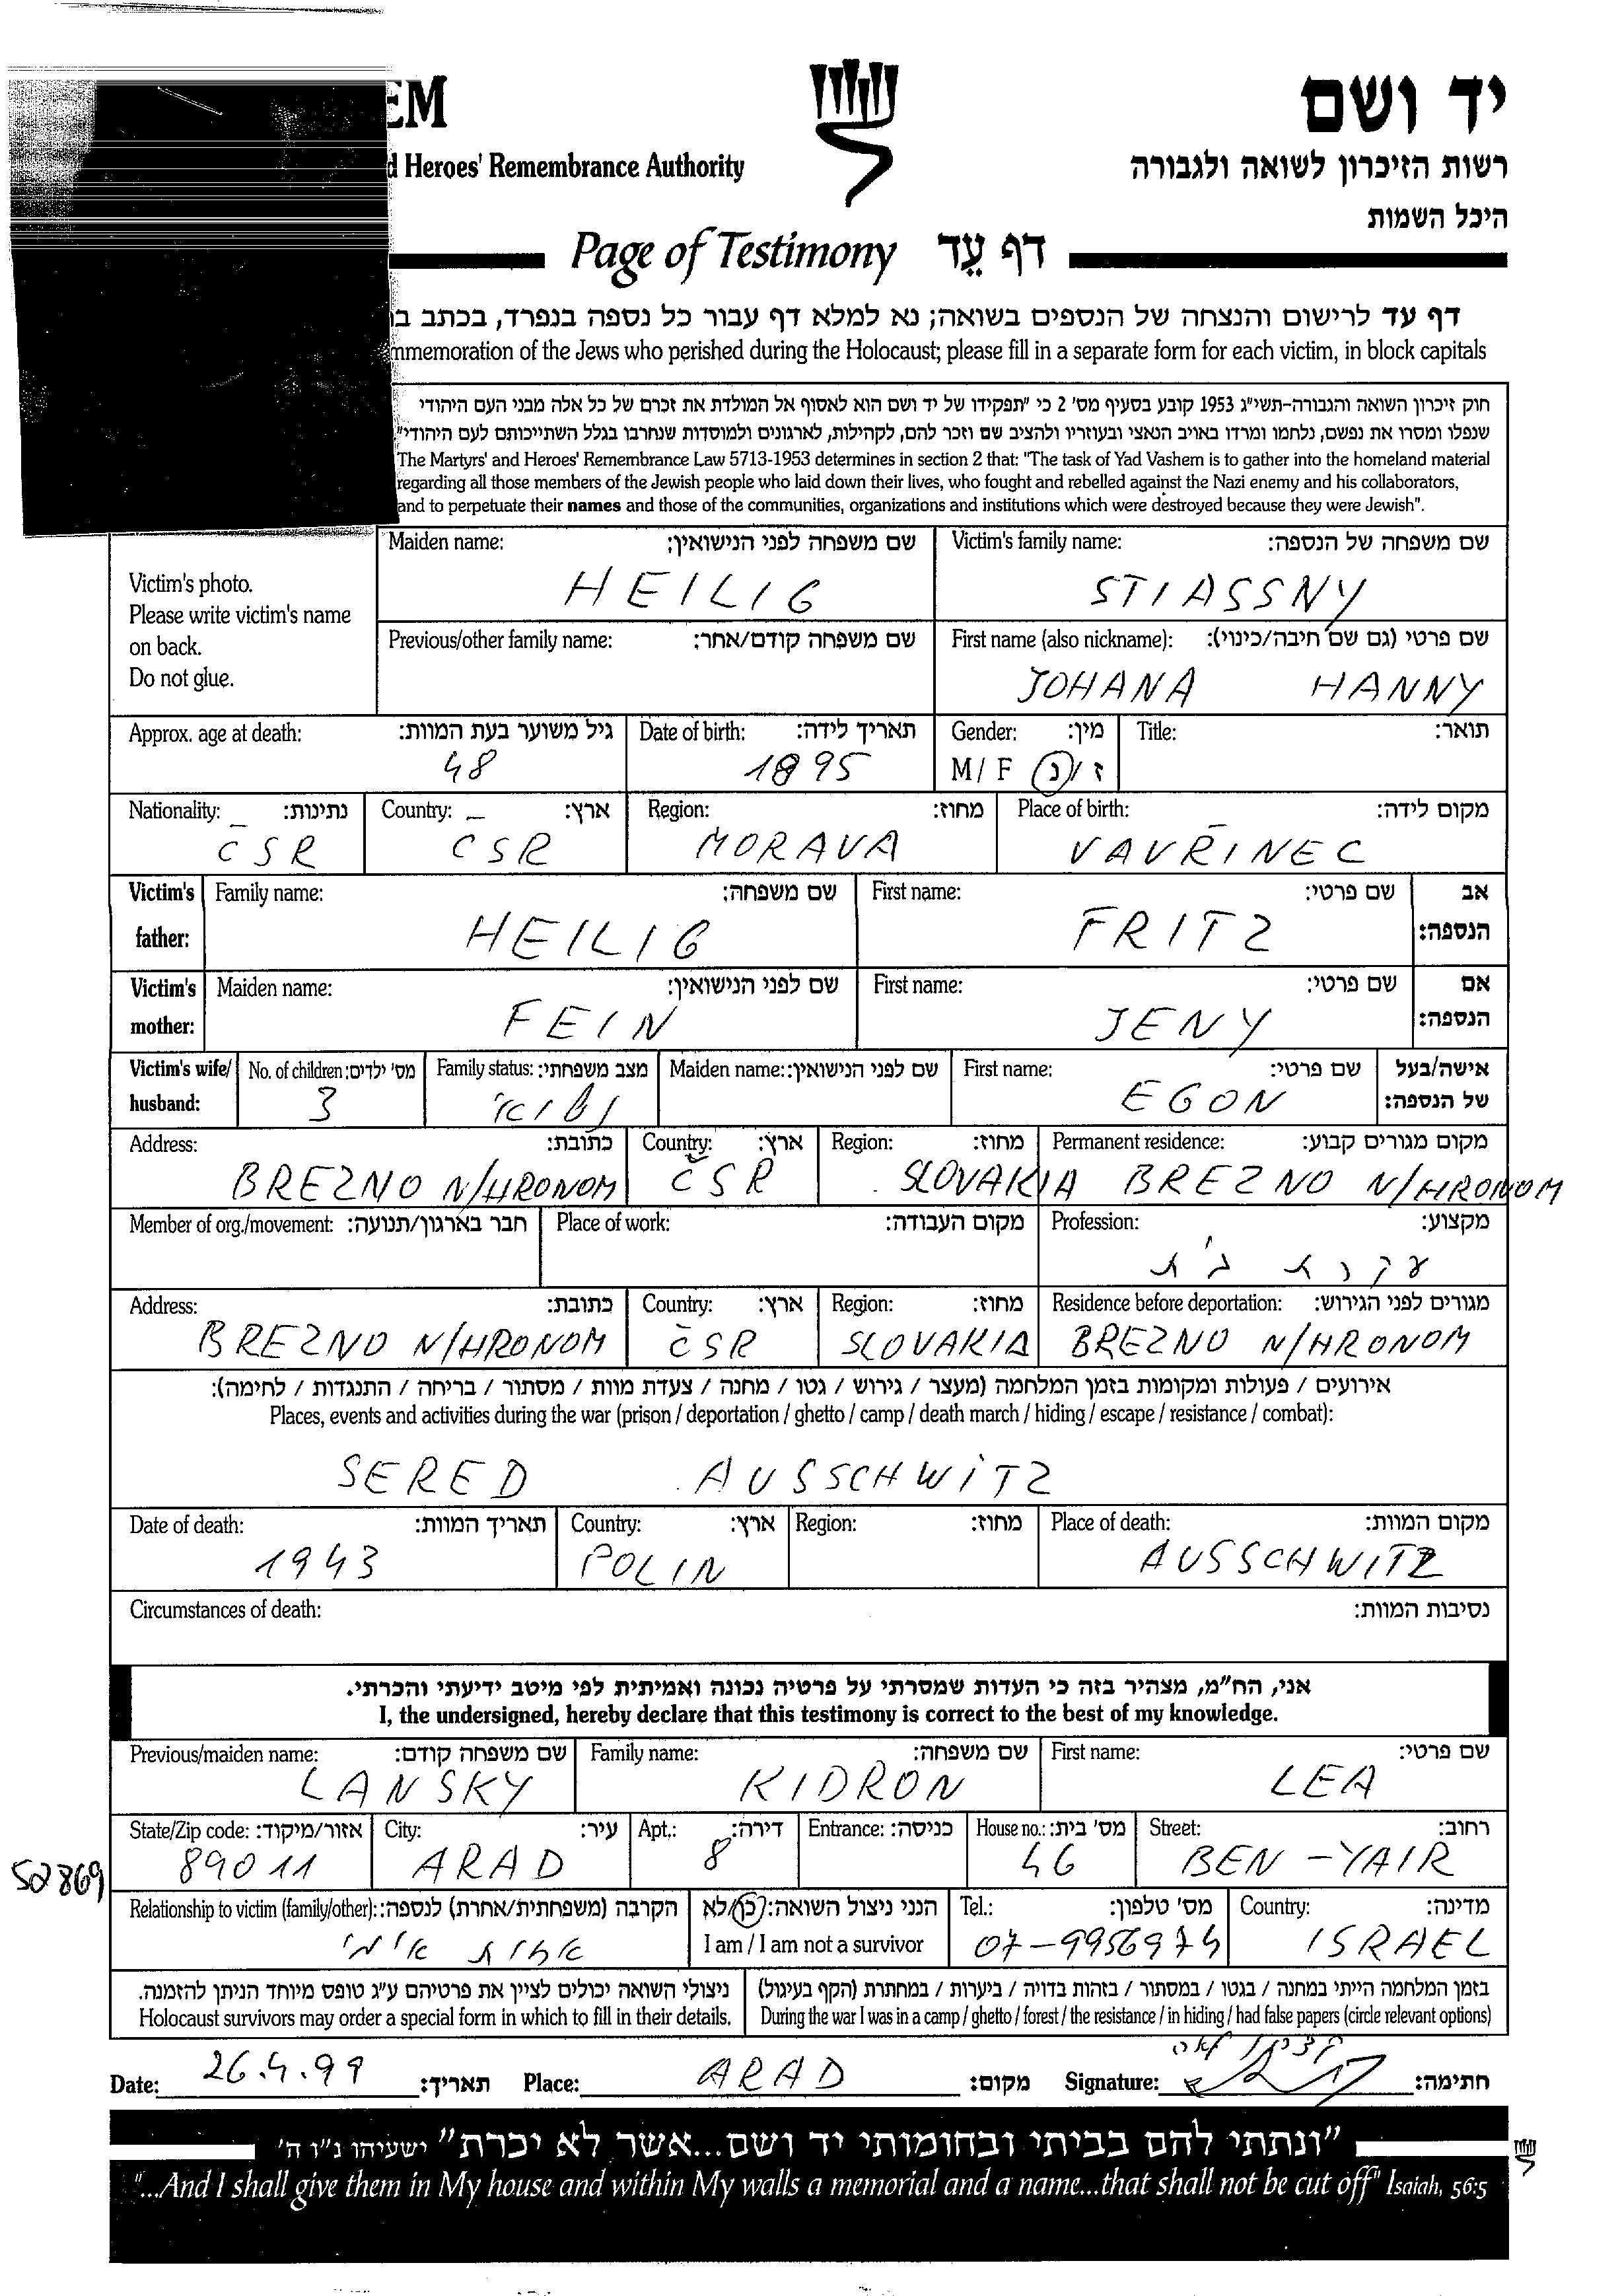 EM
יד ושם
d Heroes' Remembrance Authority
רשות הזיכרון לשואה ולגבורה
היכל השמות
Page of Testimony דף עֵד
דף עד לרישום והנצחה של הנספים בשואה; נא למלא דף עבור כל נספה בנפרד, בכתב
mmemoration of the Jews who perished during the Holocaust; please fill in a separate form for each victim, in block capitals
חוק זיכרון השואה והגבורה-תשי"ג 1953 קובע בסעיף מס' 2 כי "תפקידו של יד ושם הוא לאסוף אל המולדת את זכרם של כל אלה מבני העם היהודי
שנפלו ומסרו את נפשם, נלחמו ומרדו באויב הנאצי ובעוזריו ולהציב שם וזכר להם, לקהילות, לארגונים ולמוסדות שנחרבו בגלל השתייכותם לעם היהודי"
The Martyrs' and Heroes' Remembrance Law 5713-1953 determines in section 2 that: "The task of Yad Vashem is to gather into the homeland material
regarding all those members of the Jewish people who laid down their lives, who fought and rebelled against the Nazi enemy and his collaborators,
and to perpetuate their names and those of the communities, organizations and institutions which were destroyed because they were Jewish".
Victim's photo.
Please write victim's name
on back.
Do not glue.
Maiden name: שם משפחה לפני הנישואין: Victim's family name: שם משפחה של הנספה:
HEILIG STIASSNY
Previous/other family name: שם משפחה קודם/אחר: First name (also nickname): שם פרטי (גם שם חיבה/כינוי):
JOHANA HANNY
Approx. age at death: גיל משוער בעת המוות: Date of birth: תאריך לידה: Gender: מין: Title: תואר:
48 1895 M/ F ז/נ
Nationality: נתינות: Country: ארץ: Region: מחוז: Place of birth: מקום לידה:
ČSR ČSR MORAVA VAVŘINEC
Victim's father: Family name: שם משפחה: First name: שם פרטי: אב הנספה:
HEILIG FRITZ
Victim's mother: Maiden name: שם לפני הנישואין: First name: שם פרטי: אם הנספה:
FEIN JENY
Victim's wife/ husband: No. of children: מס' ילדים: Family status: מצב משפחתי: Maiden name: שם לפני הנישואין: First name: שם פרטי: אישה/בעל של הנספה:
3 נשואי EGON
Address: כתובת: Country: ארץ: Region: מחוז: Permanent residence: מקום מגורים קבוע:
BREZNO N/HRONOM ČSR SLOVAKIA BREZNO N/HRONOM
Member of org./movement: חבר בארגון/תנועה: Place of work: מקום העבודה: Profession: מקצוע:
עקרת בית
Address: כתובת: Country: ארץ: Region: מחוז: Residence before deportation: מגורים לפני הגירוש:
BREZNO N/HRONOM ČSR SLOVAKIA BREZNO N/HRONOM
אירועים / פעולות ומקומות בזמן המלחמה (מעצר / גירוש / גטו / מחנה / צעדת מוות / מסתור / בריחה / התנגדות / לחימה):
Places, events and activities during the war (prison / deportation / ghetto / camp / death march / hiding / escape / resistance / combat):
SERED AUSSCHWITZ
Date of death: תאריך המוות: Country: ארץ: Region: מחוז: Place of death: מקום המוות:
1943 POLIN AUSSCHWITZ
Circumstances of death: נסיבות המוות:
אני, הח"מ, מצהיר בזה כי העדות שמסרתי על פרטיה נכונה ואמיתית לפי מיטב ידיעתי והכרתי.
I, the undersigned, hereby declare that this testimony is correct to the best of my knowledge.
Previous/maiden name: שם משפחה קודם: Family name: שם משפחה: First name: שם פרטי:
LANSKY KIDRON LEA
State/Zip code: אזור/מיקוד: City: עיר: Apt.: דירה: Entrance: כניסה: House no.: מס' בית: Street: רחוב:
89011 ARAD 8 46 BEN-YAIR
50869
Relationship to victim (family/other): הקרבה (משפחתית/אחרת) לנספה: הנני ניצול השואה: כן/לא Tel.: מס' טלפון: Country: מדינה:
אחות אימי I am / I am not a survivor 07-9956974 ISRAEL
ניצולי השואה יכולים לציין את פרטיהם ע"ג טופס מיוחד הניתן להזמנה. בזמן המלחמה הייתי במחנה / בגטו / במסתור / בזהות בדויה / ביערות / במחתרת (הקף בעיגול)
Holocaust survivors may order a special form in which to fill in their details. During the war I was in a camp / ghetto / forest / the resistance / in hiding / had false papers (circle relevant options)
Date: 26.4.99 תאריך: Place: ARAD מקום: Signature: קדרון לאה חתימה:
"ונתתי להם בביתי ובחומותי יד ושם...אשר לא יכרת" ישעיהו נ"ו ה'
"...And I shall give them in My house and within My walls a memorial and a name...that shall not be cut off" Isaiah, 56:5